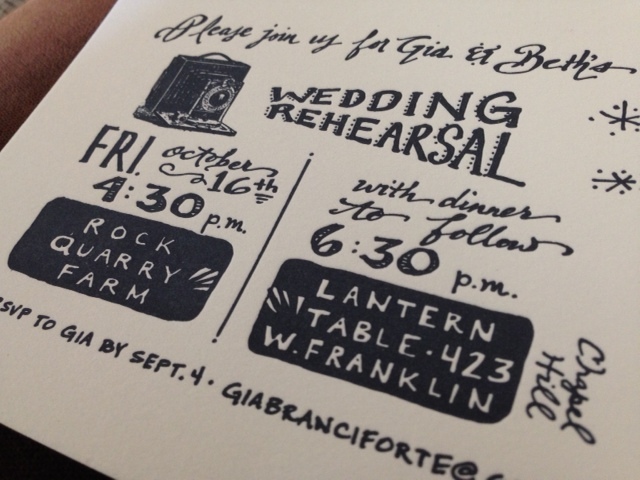 Please join us for Gia & Beth's
WEDDING
REHEARSAL
FRI. october 16th
4:30 p.m.
ROCK
QUARRY
FARM
with dinner
to follow
6:30 p.m.
LANTERN
TABLE · 423
W. FRANKLIN
Chapel
Hill
RSVP TO GIA BY SEPT. 4 · GIABRANCIFORTE@